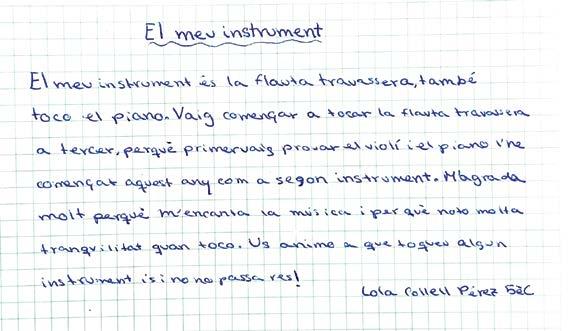 El meu instrument
El meu instrument és la flauta travassera, també
toco el piano. Vaig començar a tocar la flauta travassera
a tercer, perquè primer vaig provar el violí i el piano l'he
començat aquest any com a segon instrument. M'agrada
molt perquè m'encanta la música i perquè noto molta
tranquilitat quan toco. Us animo a que toqueu algun
instrument i si no no passa res!
Lola Collell Pérez 5èC